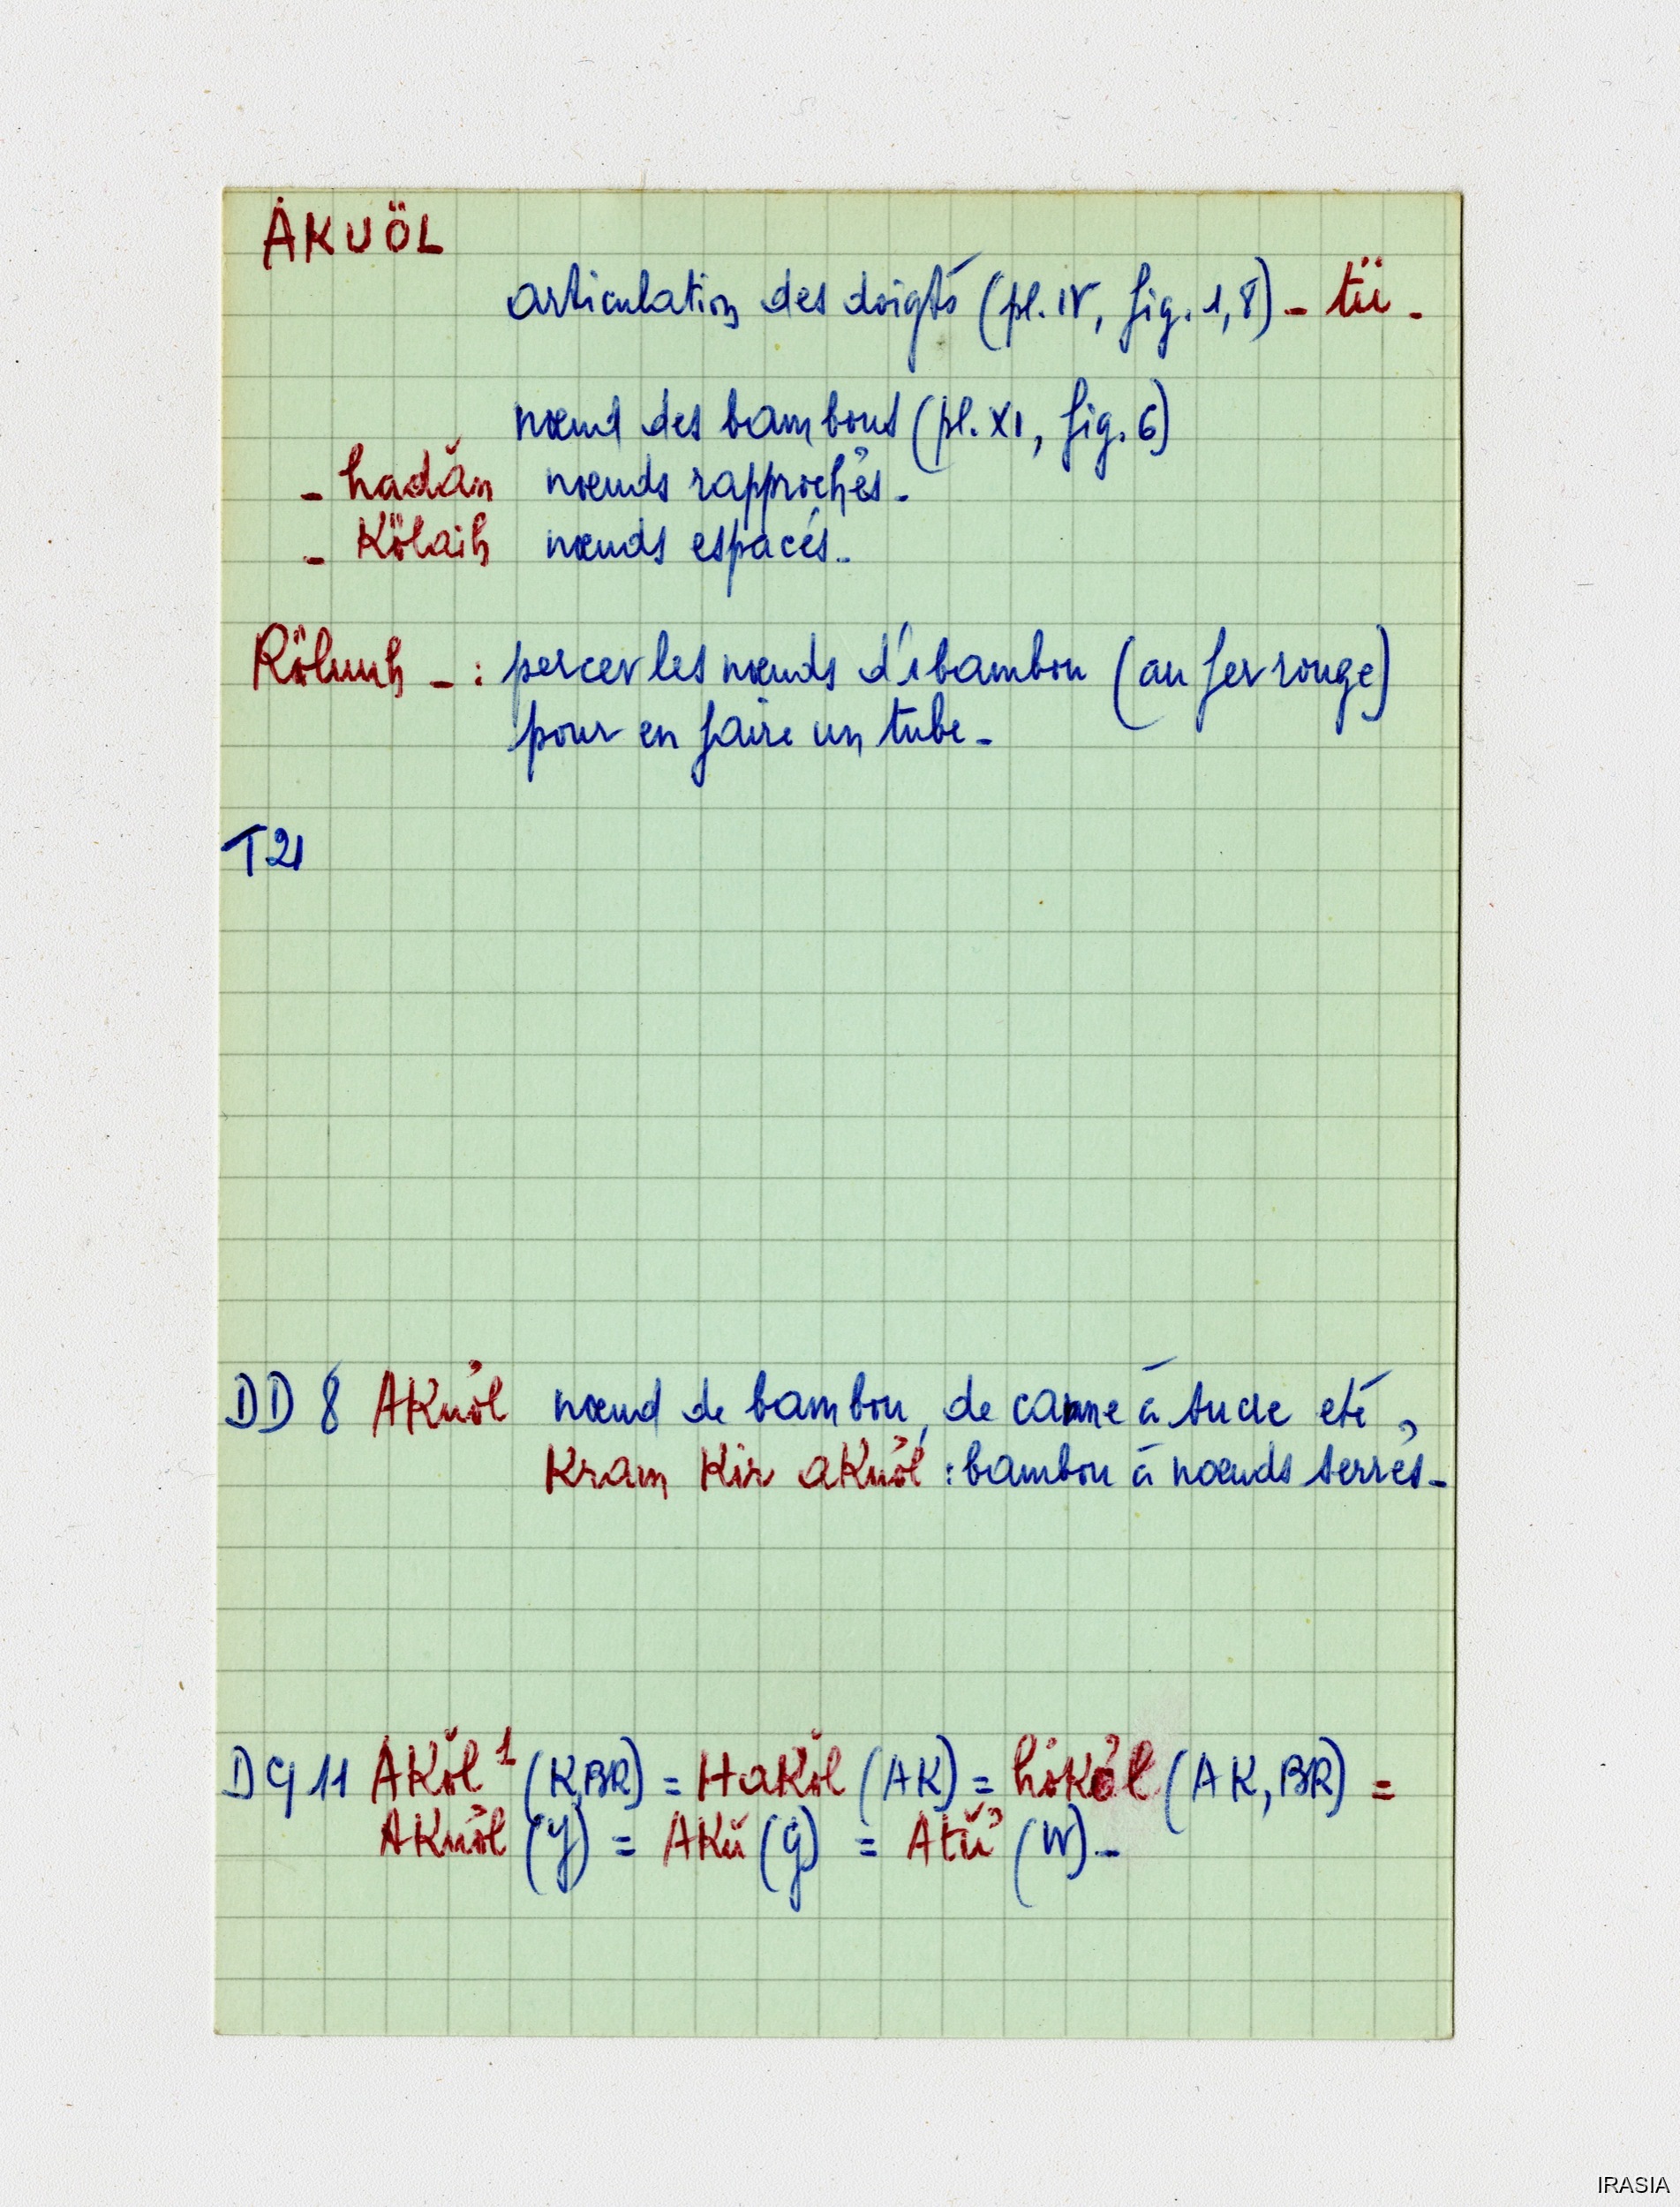 ȦKUÖL
articulation des doigts (pl. IV, fig. 1, 8) - tü -
nœud des bambous (pl. XI, fig. 6)
- hadăn nœuds rapprochés -
- Kölaih nœuds espacés -
Rölunh - : percer les nœuds d'1 bambou (au fer rouge)
pour en faire un tube -
T21
DD 8 AKuơ̆l nœud de bambou, de canne à sucre etc,
Kram Kir aKuơ̆l : bambou à nœuds serrés -
DG 11 AKŏl¹ (K, BR) = HaKŏl (AK) = hơKŏl (AK, BR) =
AKuơ̆l (Y) = AKŭ (G) = Atŭ' (W) -
IRASIA